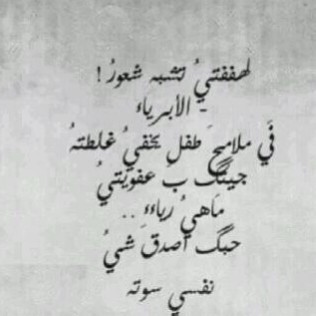 لهفتي تشبه شعور !
- الأبرياء
في ملامح طفل يخفي غلطته
جيتگ ب عفويتي
ماهي رياء ..
حبگ أصدق شي
نفسي سوته